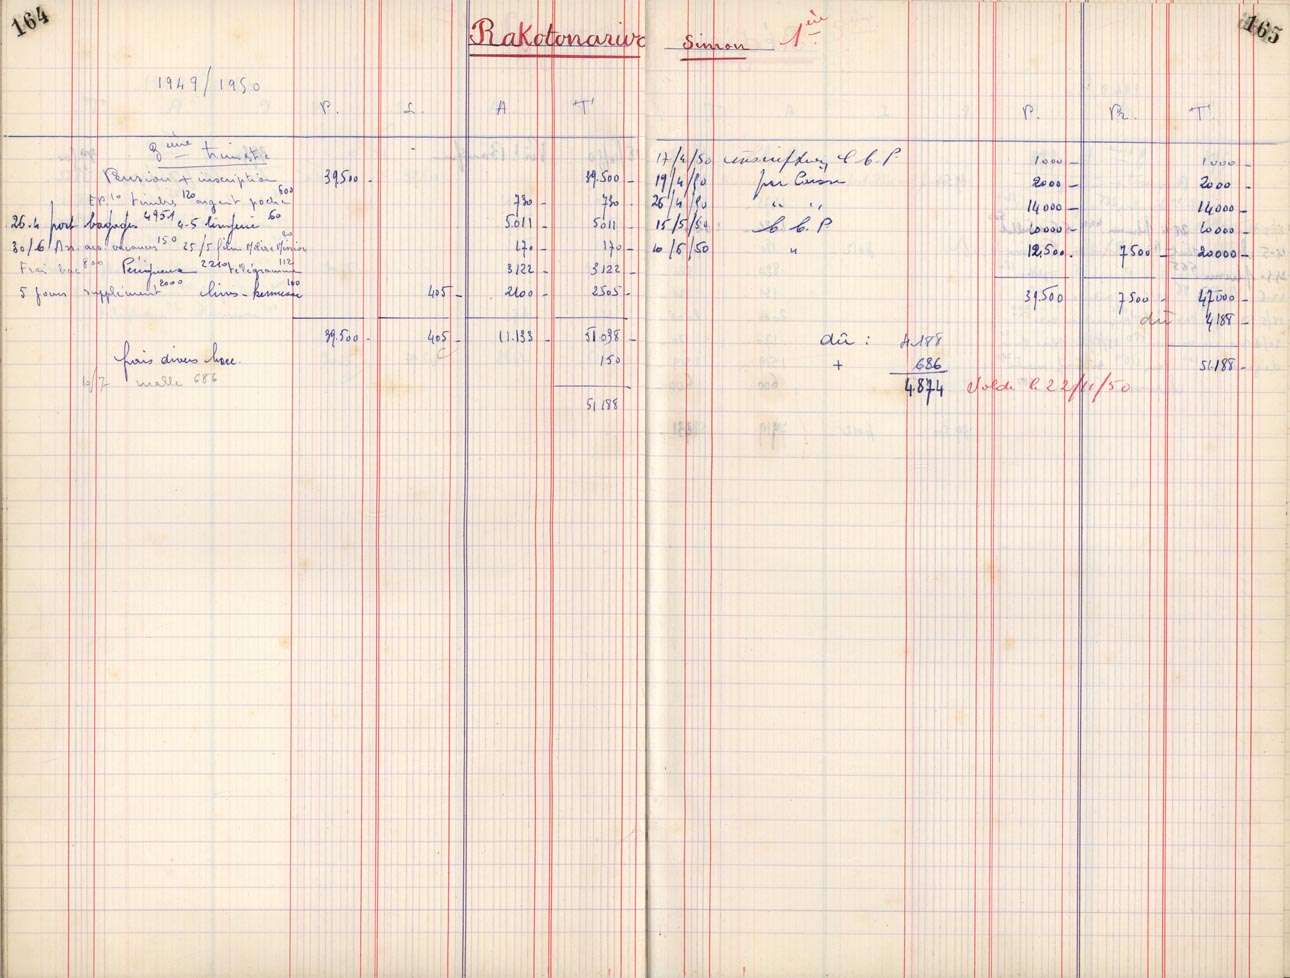 164
Rakotonarivo
1949/1950
P. L. A T'
3ème trimestre
Pension + inscription 39.500 - 39.500 -
EP. 10 timbres 120 argent poche 600 730 - 730 -
26.4 port bagages 4951 4-5 lingerie 60 5.011 - 5.011 -
30/6 Ass. acc. vacances 150 25/5 film 20 170 - 170 -
Frais bac 800 Périgueux 2210 télégramme 112 3122 - 3122 -
5 jours supplément 2000 livres - kermesse 100 405 - 2100 - 2505 -
39.500 - 405 - 11.133 - 51.038 -
frais divers bacc. 150
10/7 malle 686
51.188
165
Simon 1ère
P. Pr. T'.
17/4/50 inscription, C.C.P. 1000 - 1000 -
19/4/50 par Caisse 2000 - 2000 -
26/4/50 " " 14000 - 14000 -
15/5/50 C.C.P 10000 - 10000 -
10/6/50 " 12.500 - 7500 - 20000 -
39.500 7500 - 47.000 -
dû 4.188 -
dû : 4.188
51.188 -
+ 686
4.874 Soldé le 22/11/50